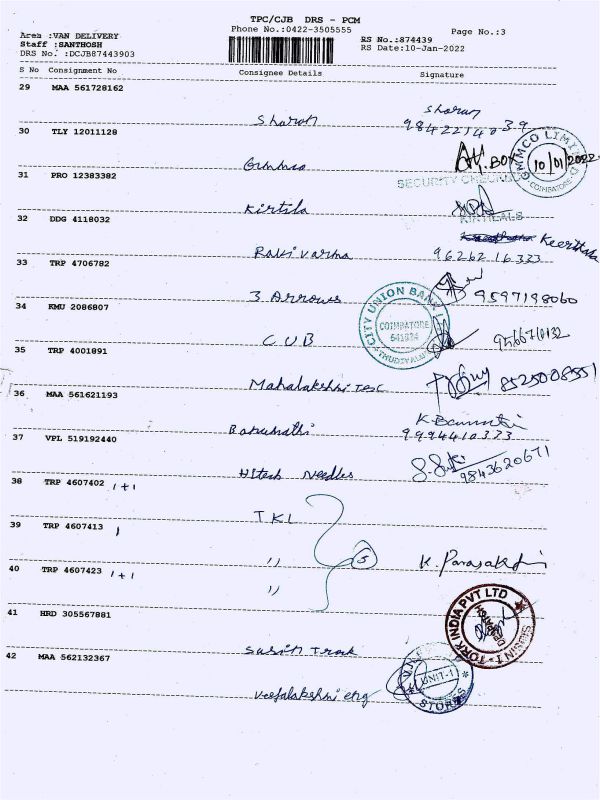 TPC/CJB DRS - PCM
Phone No.:0422-3505555
Page No.:3
Area :VAN DELIVERY
Staff :SANTHOSH
DRS No. :DCJB87443903
RS No.:874439
RS Date:10-Jan-2022
S No Consignment No Consignee Details Signature
29 MAA 561728162
Sharon Sharon
9842214039
30 TLY 12011128
BOX
GWMCO LIMITED
10/01/2022
COIMBATORE
31 PRO 12383382
SECURITY CHECKED
Kirtila
KIRTILALS
32 DDG 4118032
Keerthana
Ravi Varma 9626216323
33 TRP 4706782
3 Arrows 9597198060
34 KMU 2086807
CITY UNION BANK
COIMBATORE
641034
THUDIYALUR
CUB 9566710132
35 TRP 4001891
Mahalakshmi Tex 8525008551
36 MAA 561621193
9994410373
37 VPL 519192440
Hitech Needles 9843620671
38 TRP 4607402 1+1
TKI
39 TRP 4607413 1
" 5
40 TRP 4607423 1+1
"
41 HRD 305567881
SUSIN T - TORK INDIA PVT LTD
Susin Tork
42 MAA 562132367
UNIT-1
STORES